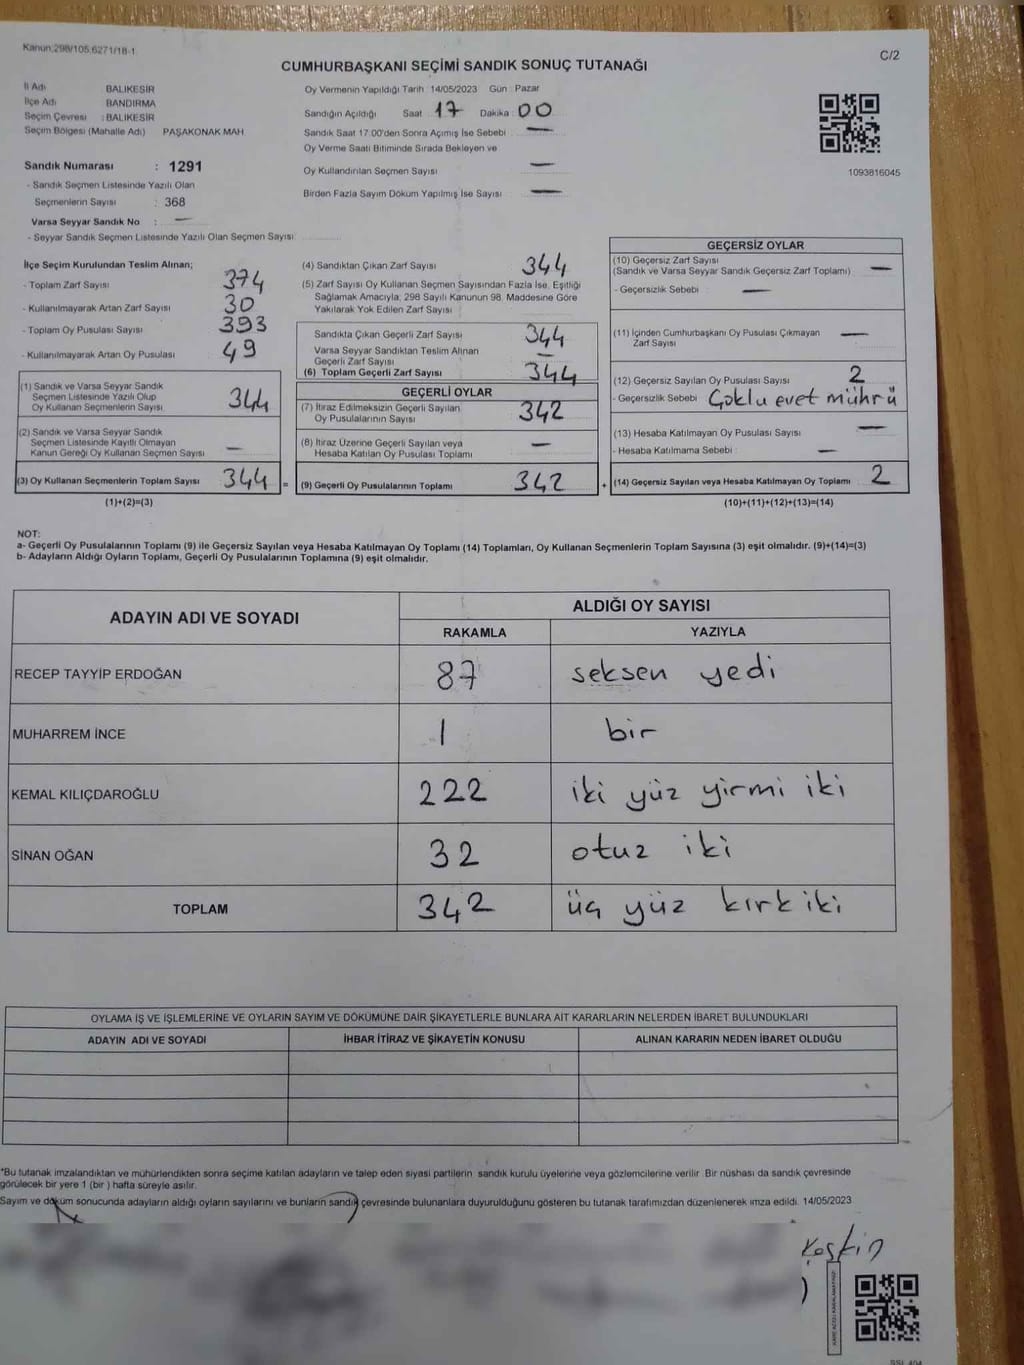 Kanun.298/105.6271/18-1
C/2
CUMHURBAŞKANI SEÇİMİ SANDIK SONUÇ TUTANAĞI
İl Adı BALIKESİR
İlçe Adı BANDIRMA
Seçim Çevresi : BALIKESİR
Seçim Bölgesi (Mahalle Adı) PAŞAKONAK MAH
Sandık Numarası : 1291
- Sandık Seçmen Listesinde Yazılı Olan
Seçmenlerin Sayısı : 368
Varsa Seyyar Sandık No : —
- Seyyar Sandık Seçmen Listesinde Yazılı Olan Seçmen Sayısı
Oy Vermenin Yapıldığı Tarih 14/05/2023 Gün : Pazar
Sandığın Açıldığı Saat 17 Dakika 00
Sandık Saat 17.00'den Sonra Açımış İse Sebebi —
Oy Verme Saati Bitiminde Sırada Bekleyen ve
Oy Kullandırılan Seçmen Sayısı —
Birden Fazla Sayım Döküm Yapılmış İse Sayısı —
1093816045
İlçe Seçim Kurulundan Teslim Alınan;
- Toplam Zarf Sayısı 374
- Kullanılmayarak Artan Zarf Sayısı 30
- Toplam Oy Pusulası Sayısı 393
- Kullanılmayarak Artan Oy Pusulası 49
(1) Sandık ve Varsa Seyyar Sandık
Seçmen Listesinde Yazılı Olup
Oy Kullanan Seçmenlerin Sayısı 344
(2) Sandık ve Varsa Seyyar Sandık
Seçmen Listesinde Kayıtlı Olmayan
Kanun Gereği Oy Kullanan Seçmen Sayısı —
(3) Oy Kullanan Seçmenlerin Toplam Sayısı 344 =
(1)+(2)=(3)
(4) Sandıktan Çıkan Zarf Sayısı 344
(5) Zarf Sayısı Oy Kullanan Seçmen Sayısından Fazla İse, Eşitliği
Sağlamak Amacıyla; 298 Sayılı Kanunun 98. Maddesine Göre
Yakılarak Yok Edilen Zarf Sayısı
Sandıkta Çıkan Geçerli Zarf Sayısı 344
Varsa Seyyar Sandıktan Teslim Alınan
Geçerli Zarf Sayısı —
(6) Toplam Geçerli Zarf Sayısı 344
GEÇERLİ OYLAR
(7) İtiraz Edilmeksizin Geçerli Sayılan
Oy Pusulalarının Sayısı 342
(8) İtiraz Üzerine Geçerli Sayılan veya
Hesaba Katılan Oy Pusulası Toplamı —
(9) Geçerli Oy Pusulalarının Toplamı 342 +
GEÇERSİZ OYLAR
(10) Geçersiz Zarf Sayısı
(Sandık ve Varsa Seyyar Sandık Geçersiz Zarf Toplamı) —
- Geçersizlik Sebebi —
(11) İçinden Cumhurbaşkanı Oy Pusulası Çıkmayan
Zarf Sayısı —
(12) Geçersiz Sayılan Oy Pusulası Sayısı 2
- Geçersizlik Sebebi Çoklu evet mührü
(13) Hesaba Katılmayan Oy Pusulası Sayısı —
- Hesaba Katılmama Sebebi —
(14) Geçersiz Sayılan veya Hesaba Katılmayan Oy Toplamı 2
(10)+(11)+(12)+(13)=(14)
NOT:
a- Geçerli Oy Pusulalarının Toplamı (9) ile Geçersiz Sayılan veya Hesaba Katılmayan Oy Toplamı (14) Toplamları, Oy Kullanan Seçmenlerin Toplam Sayısına (3) eşit olmalıdır. (9)+(14)=(3)
b- Adayların Aldığı Oyların Toplamı, Geçerli Oy Pusulalarının Toplamına (9) eşit olmalıdır.
ADAYIN ADI VE SOYADI ALDIĞI OY SAYISI
RAKAMLA YAZIYLA
RECEP TAYYİP ERDOĞAN 87 seksen yedi
MUHARREM İNCE 1 bir
KEMAL KILIÇDAROĞLU 222 iki yüz yirmi iki
SİNAN OĞAN 32 otuz iki
TOPLAM 342 üç yüz kırk iki
OYLAMA İŞ VE İŞLEMLERİNE VE OYLARIN SAYIM VE DÖKÜMÜNE DAİR ŞİKAYETLERLE BUNLARA AİT KARARLARIN NELERDEN İBARET BULUNDUKLARI
ADAYIN ADI VE SOYADI İHBAR İTİRAZ VE ŞİKAYETİN KONUSU ALINAN KARARIN NEDEN İBARET OLDUĞU
*Bu tutanak imzalandıktan ve mühürlendikten sonra seçime katılan adayların ve talep eden siyasi partilerin sandık kurulu üyelerine veya gözlemcilerine verilir. Bir nüshası da sandık çevresinde
görülecek bir yere 1 (bir ) hafta süreyle asılır.
Sayım ve döküm sonucunda adayların aldığı oyların sayılarını ve bunların sandık çevresinde bulunanlara duyurulduğunu gösteren bu tutanak tarafımızdan düzenlenerek imza edildi. 14/05/2023
Keskin